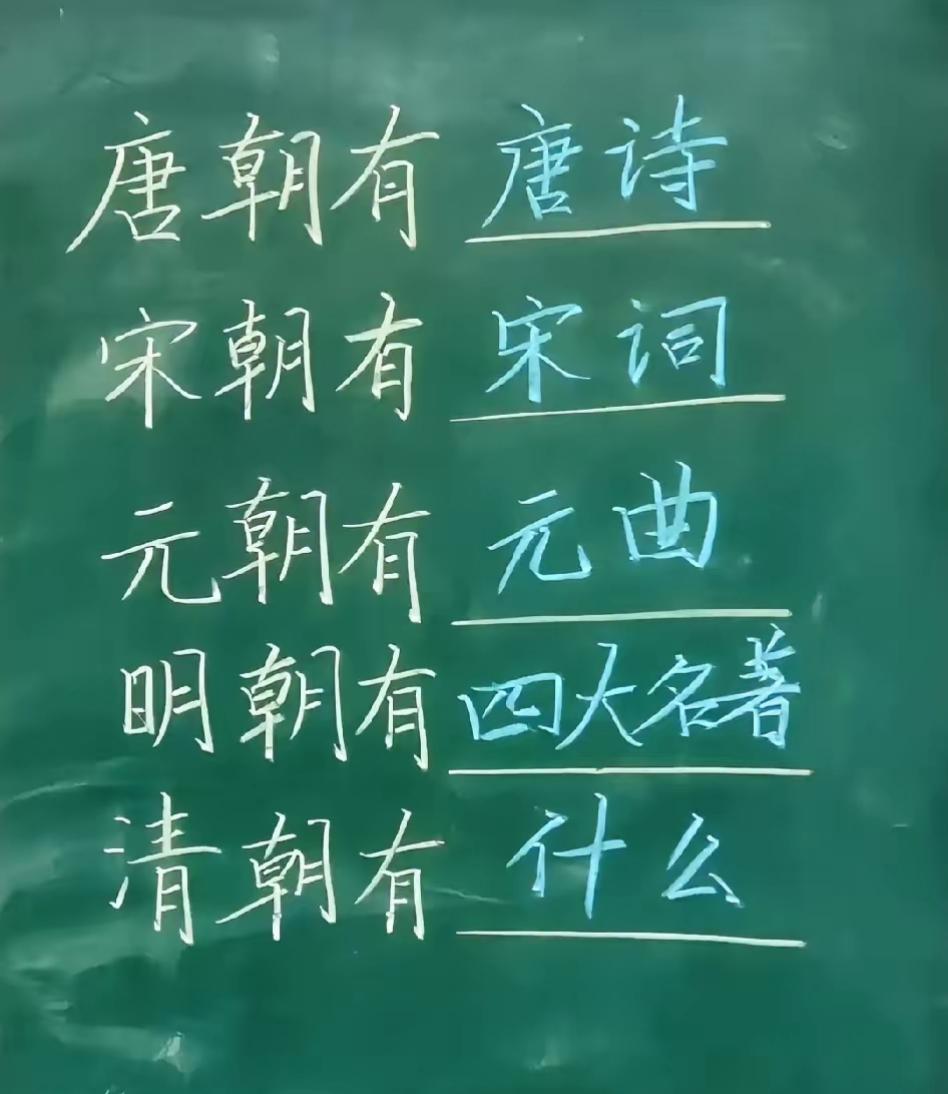 唐朝有 唐诗
宋朝有 宋词
元朝有 元曲
明朝有 四大名著
清朝有 什么